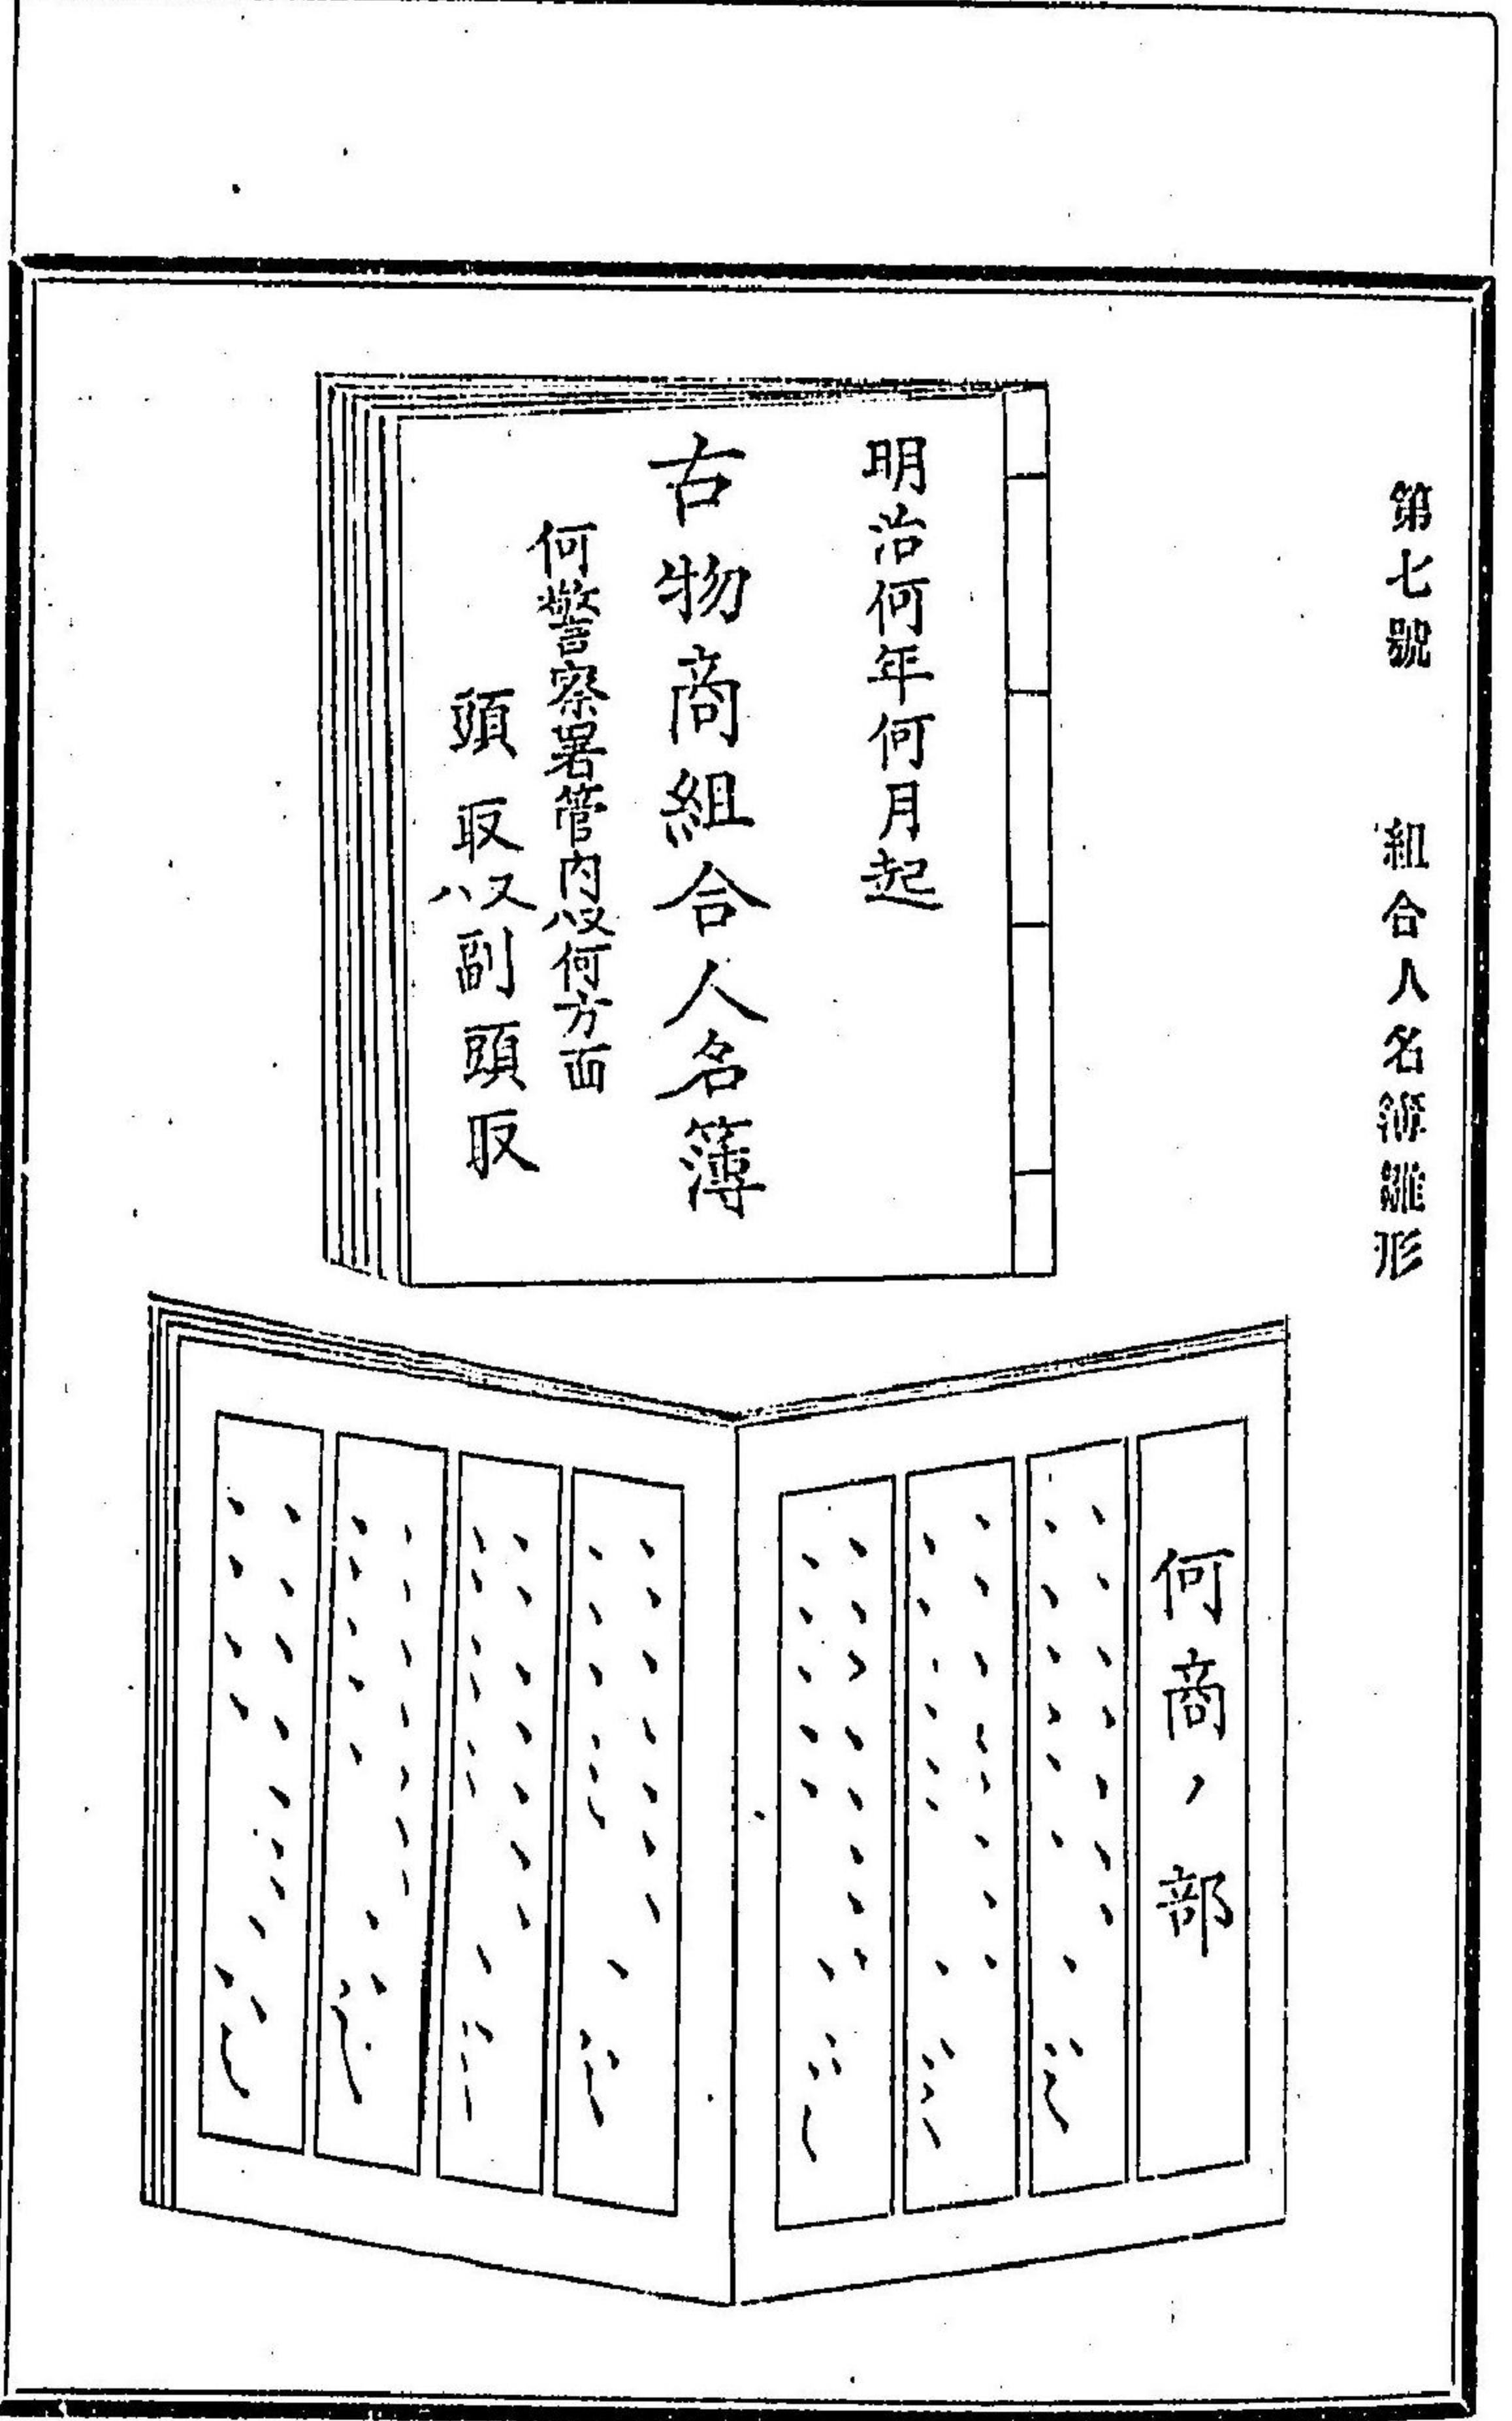 第七號 組合人名簿雛形
明治何年何月起
古物商組合人名簿
何警察署管内又ハ何方面
頭取又ハ副頭取
何商ノ部